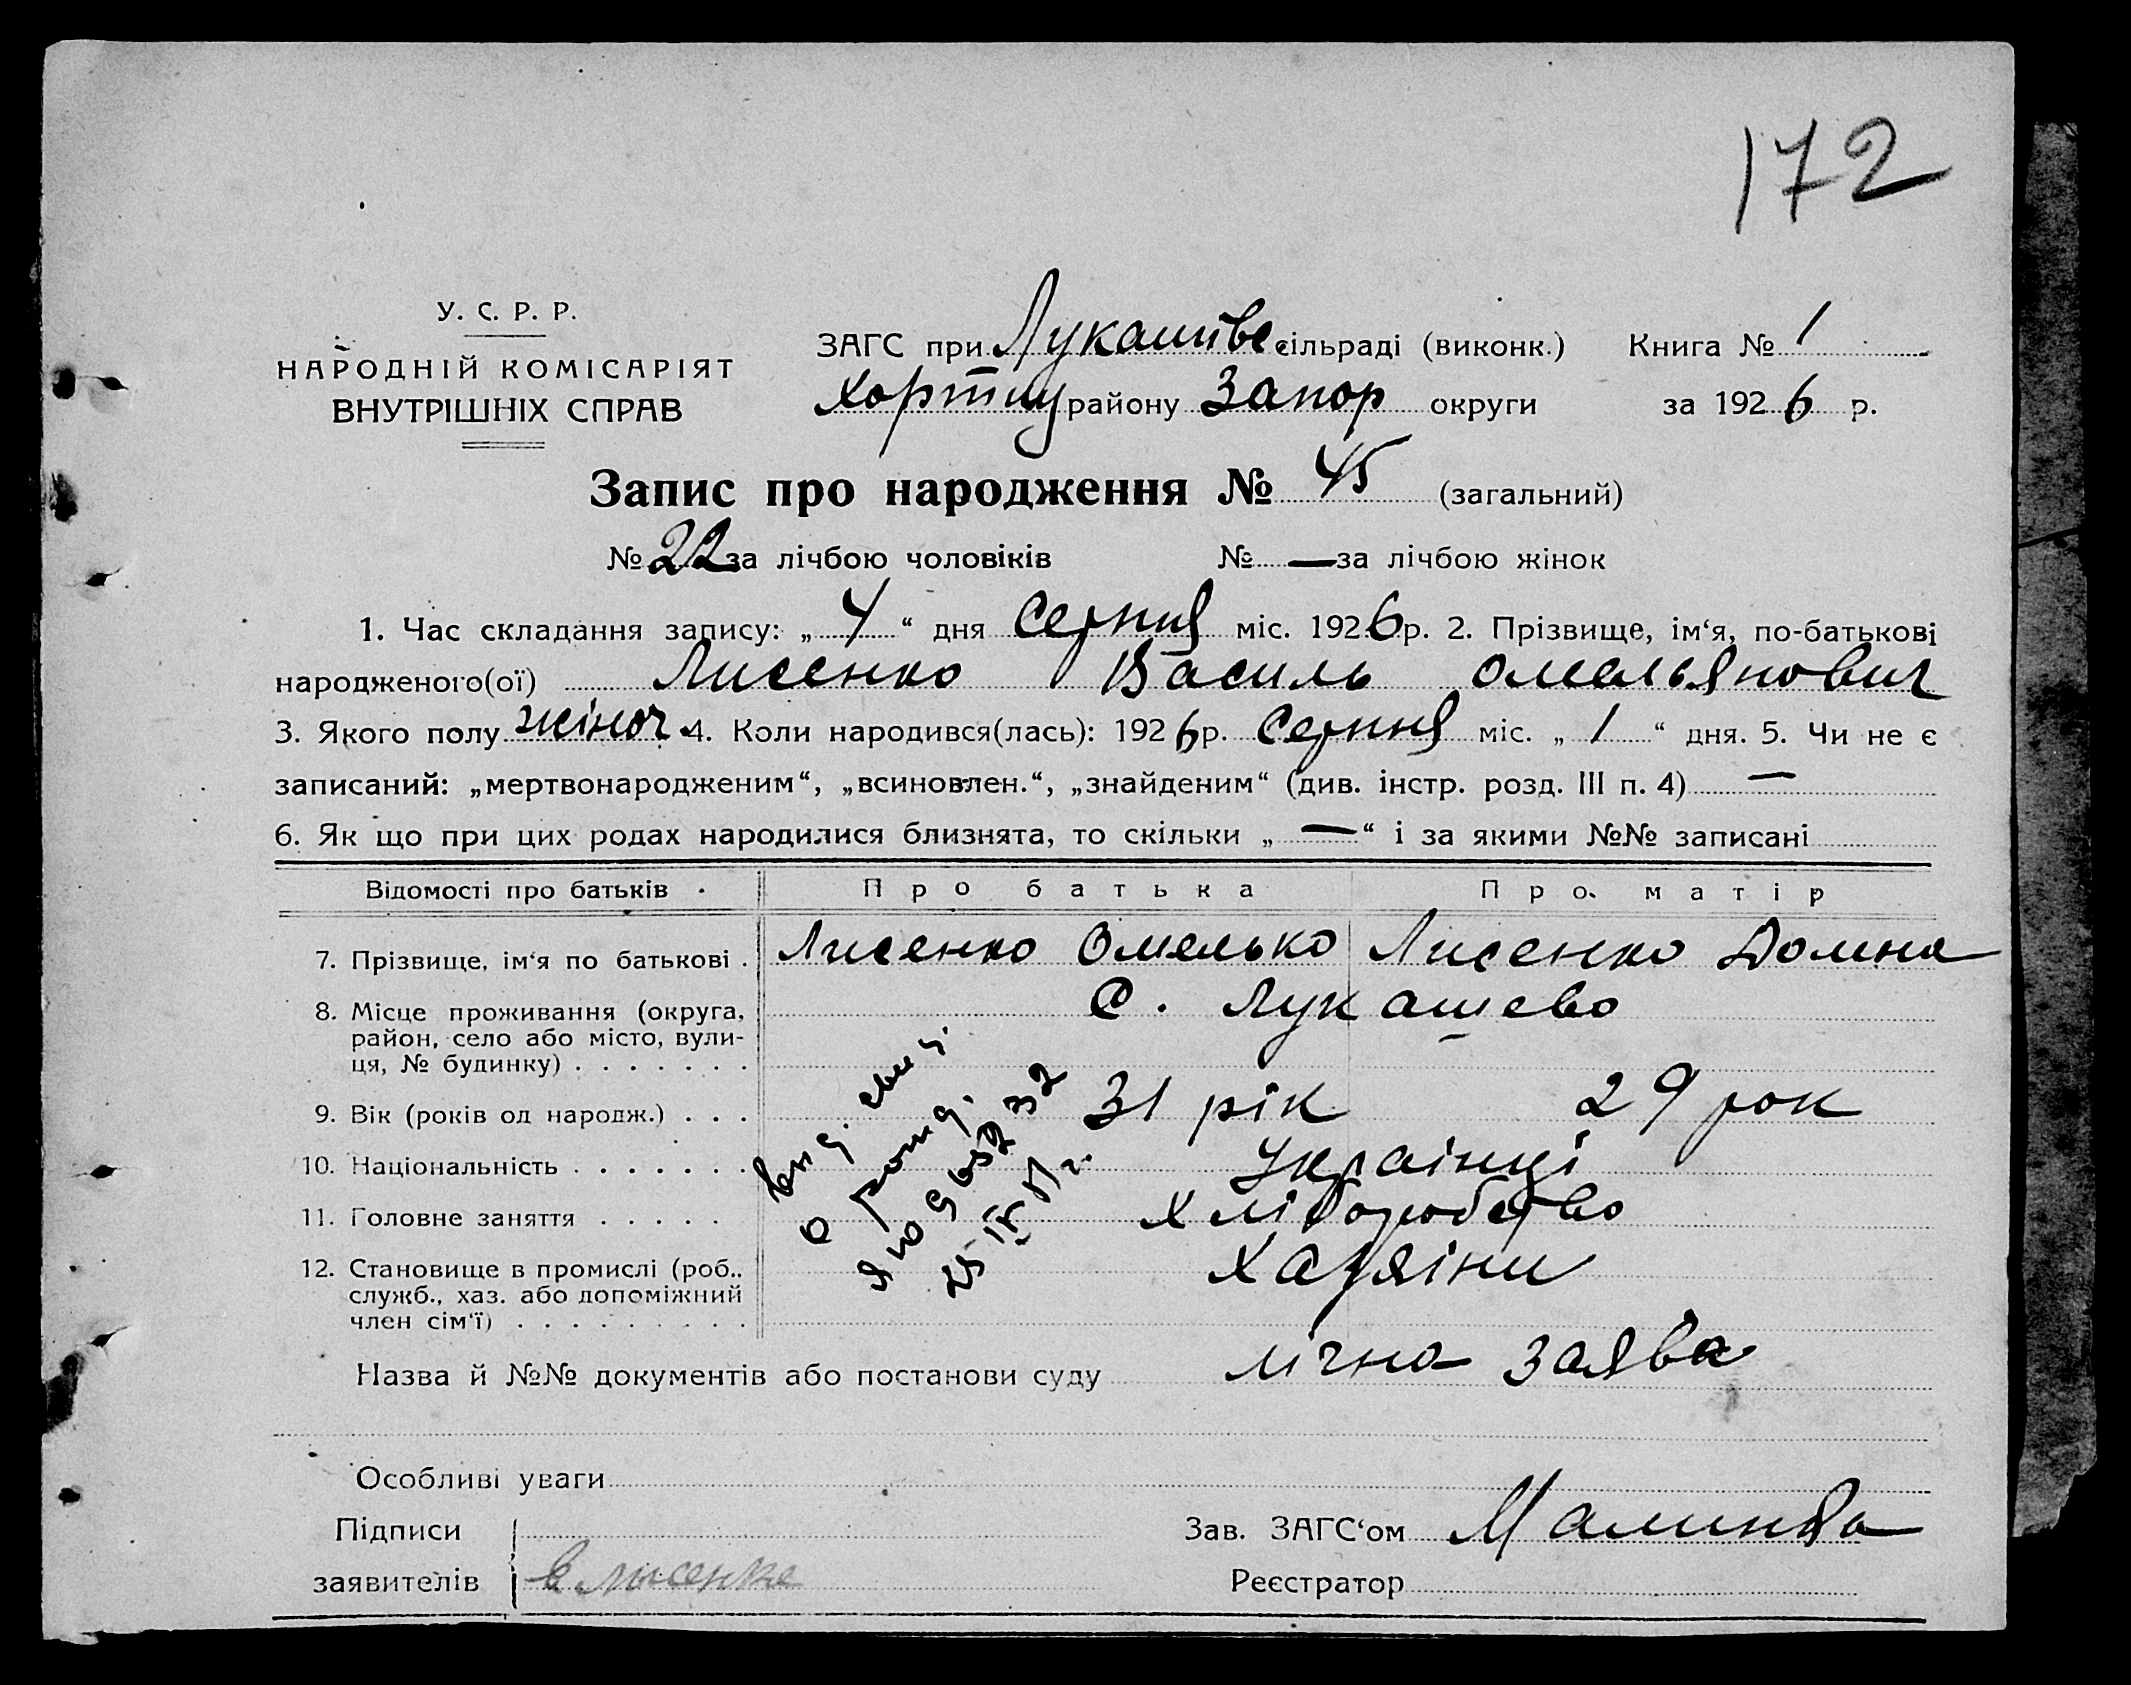 172
У. С. Р. Р.
НАРОДНІЙ КОМІСАРІЯТ
ВНУТРІШНІХ СПРАВ
ЗАГС при Лукашівс сільраді (виконк.) Книга № 1
Хортиц району Запор округи за 1926 р.
Запис про народження № 45 (загальний)
№ 22 за лічбою чоловіків № — за лічбою жінок
1. Час складання запису: „4“ дня Серпня міс. 1926 р. 2. Прізвище, ім‘я, по-батькові
народженого(ої) Лисенко Василь Омельянович
3. Якого полу жіноч 4. Коли народився(лась): 1926 р. Серпня міс. „1“ дня. 5. Чи не є
записаний: „мертвонародженим“, „всиновлен.“, „знайденим“ (див. інстр. розд. III п. 4) —
6. Як що при цих родах народилися близнята, то скільки „—“ і за якими №№ записані
Відомості про батьків Про батька Про матір
7. Прізвище, ім‘я по батькові . Лисенко Омелько Лисенко Домна
8. Місце проживання (округа, с. Лукашево
район, село або місто, вули-
ця, № будинку) . . . . . . .
9. Вік (років од народж.) . . . 31 рік 29 рок
10. Національність . . . . . . . Українці
11. Головне заняття . . . . . Хліборобство
12. Становище в промислі (роб., Хазяіни
служб., хаз. або допоміжний
член сім‘ї) . . . . . . . . .
о рожд.
Назва й №№ документів або постанови суду лічна заява
Особливі уваги
Підписи Зав. ЗАГС‘ом
заявителів в лысенке Реєстратор